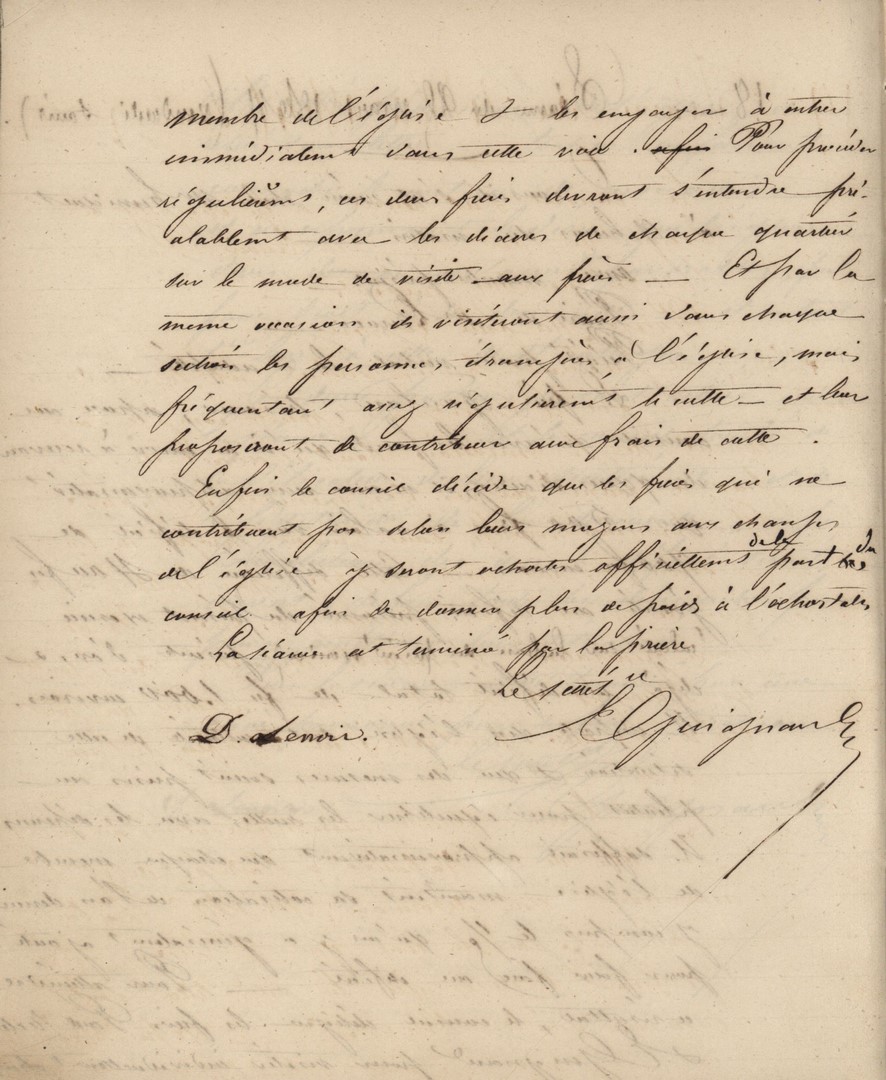 membre de l'église & les engager à entrer
immédiatemt dans cette voie. afin Pour procéder
régulièremt, ces deux frères devront s'entendre pré-
alablemt avec les diacres de chaque quartier
sur le mode de visite aux frères — Et par la
même occasion ils visiteront aussi dans chaque
section les personnes étrangères à l'église, mais
fréquentant assez régulièremt le culte — et leur
proposeront de contribuer aux frais de culte.
Enfin le conseil décide que les frères qui ne
contribuent pas selon leurs moyens aux charges
de l'église y seront exhortés officiellemt de la part du
conseil afin de donner plus de poids à l'exhortation
La séance est terminée par la prière
Le secrét re
D. Lenoir. E Guignard